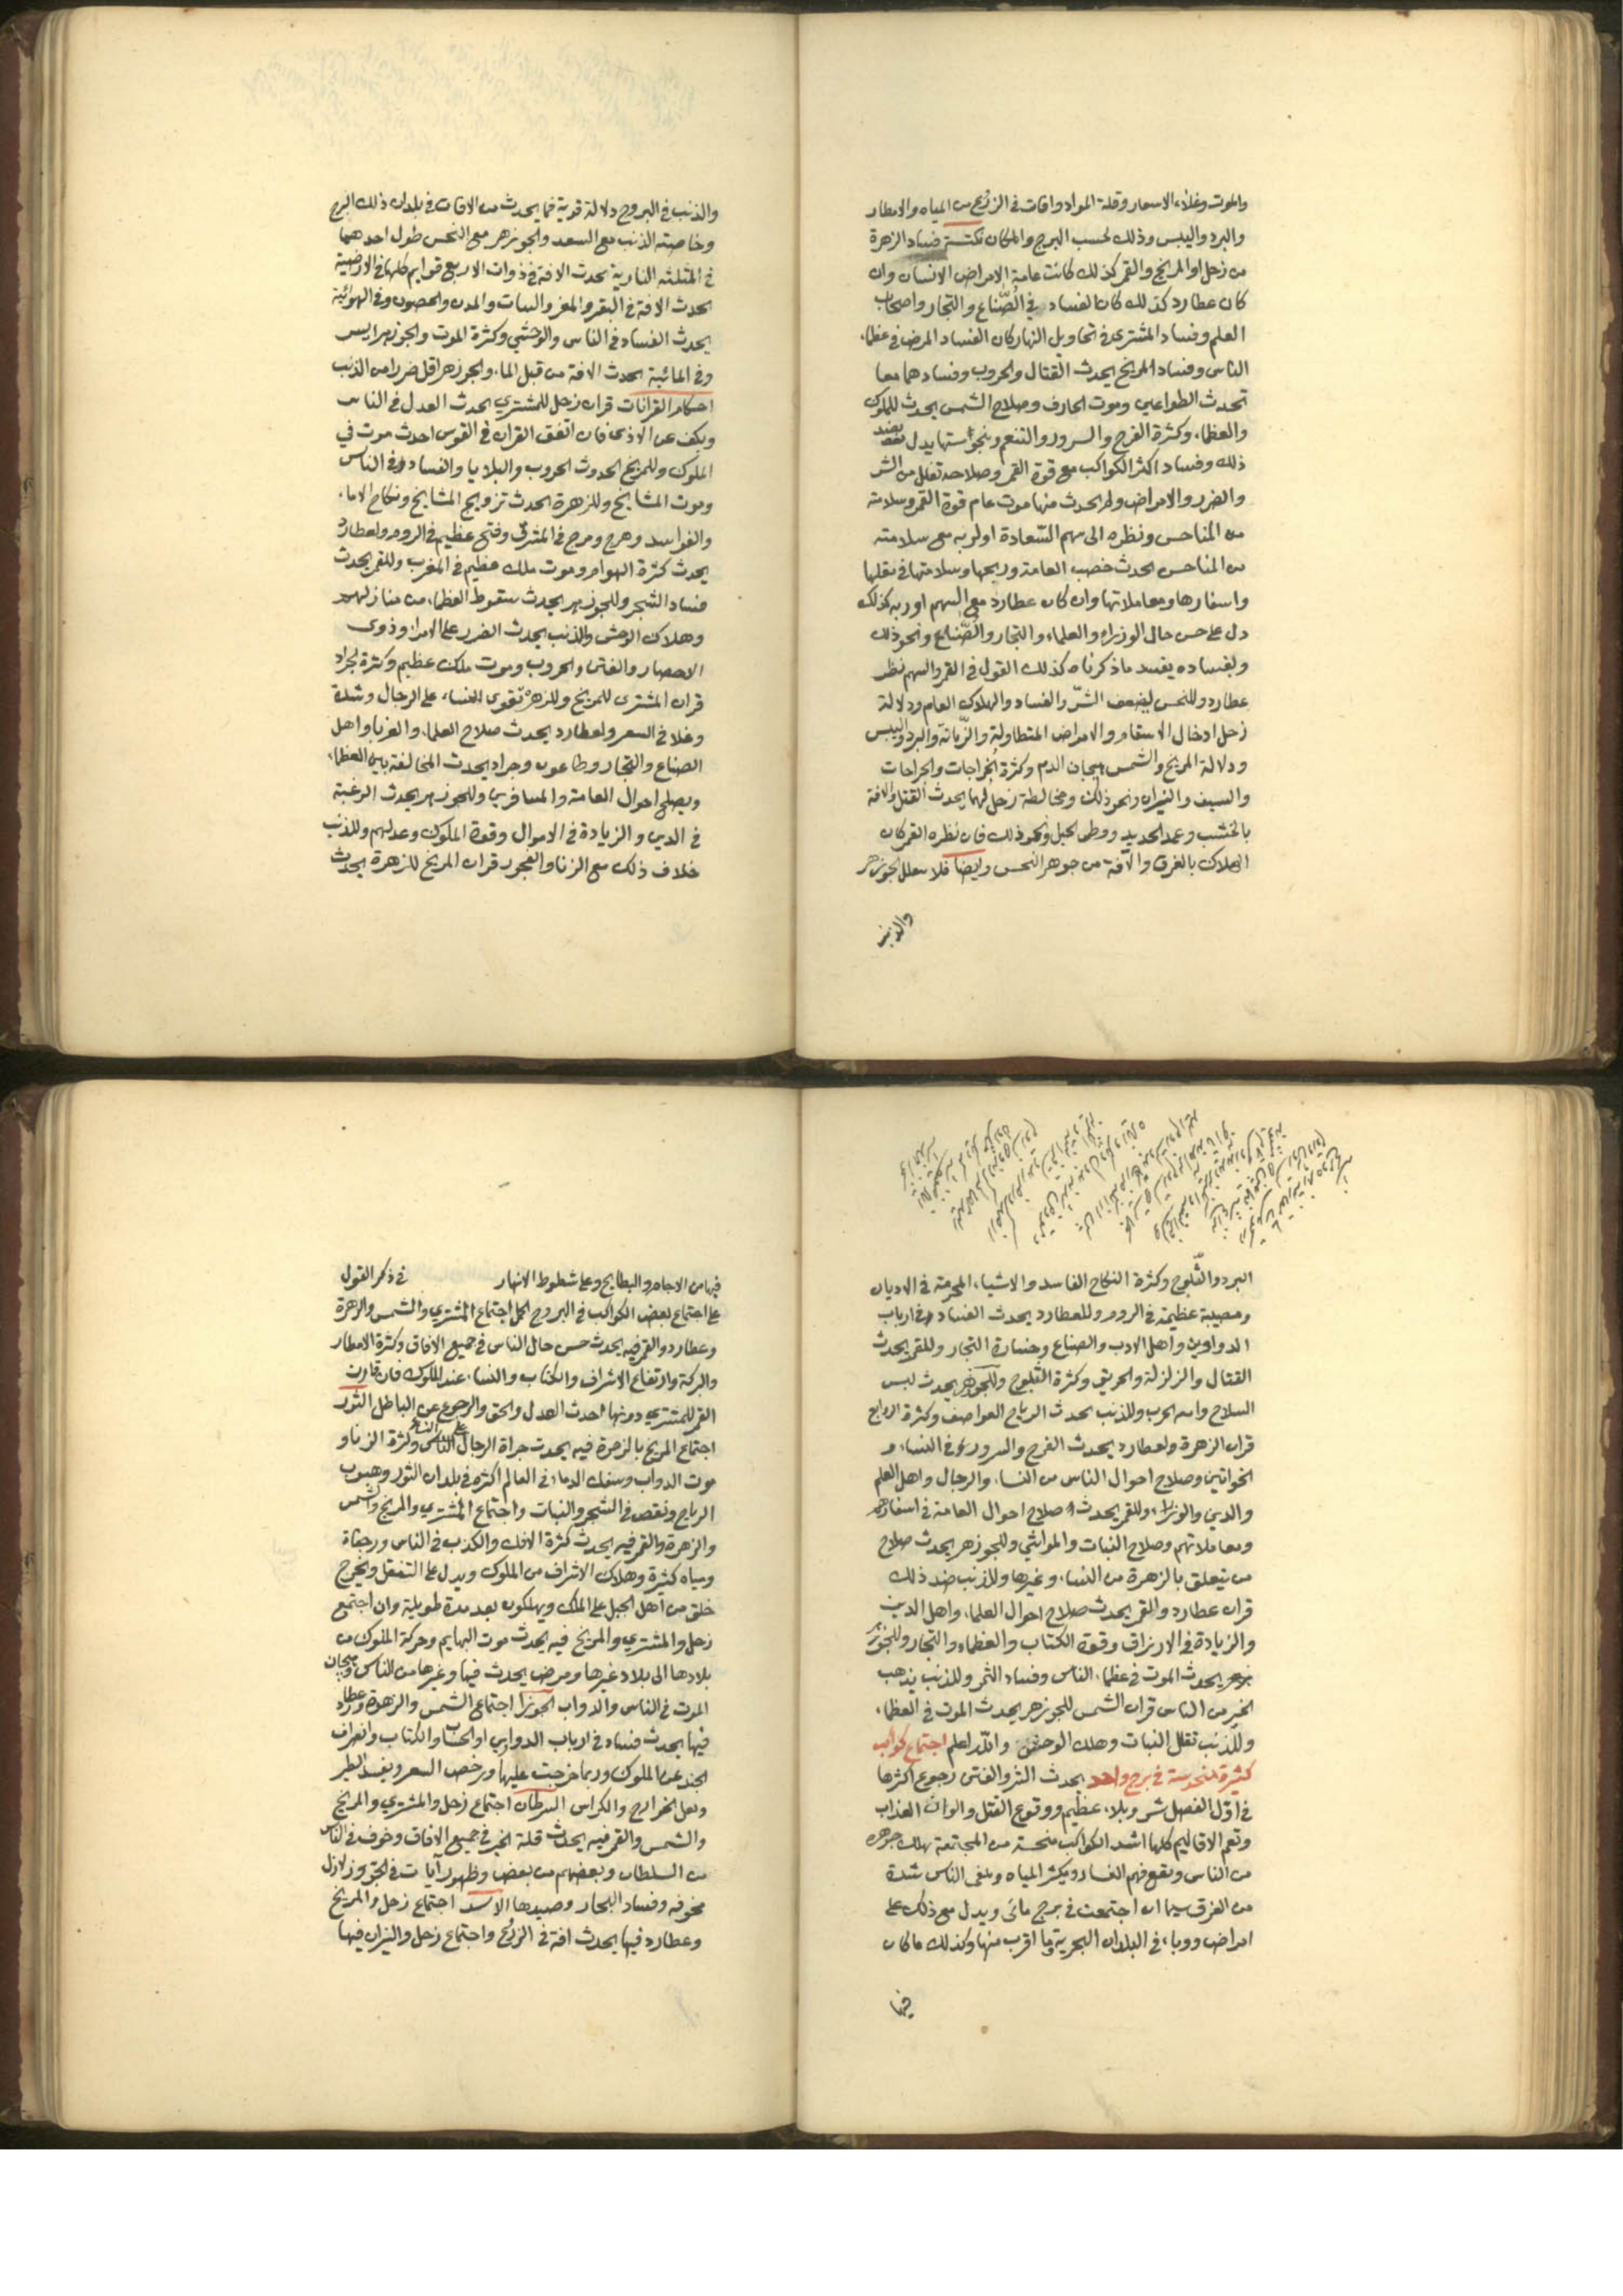 والموت وغلاء الاسعار وقلة المواد وافات في الزرع من المياه والامطار
والبرد واليبس وذلك لحسب البرج والمكان نكتسة فساد الزهرة
من زحل او المريخ والقمر كذلك كانت عامة الامراض الانسان وان
كان عطارد كذلك كان الفساد في الصّناع والتجار واصحاب
العلم وفساد المشترى في تحاويل النهار كان الفساد المرض في عظماء
الناس وفساد المريخ يحدث القتال والحروب وفسادهما معا
تحدث الطواعين وموت الحارف وصلاح الشمس يحدث للملوك
والعظماء وكثرة الفرح والسرور والتنعم وبنحوستها يدل بضد
ذلك وفساد اكثر الكواكب مع قوة القمر وصلاحه تقلل من الشر
والضرر والامراض ولم يحدث منها موت عام قوة القمر وسلامته
من المناحس ونظره الى سهم السّعادة اولربه مع سلامته
من المناحس يحدث خصب العامة وريحها وسلامتها في نقلها
واسفارها ومعاملاتها وان كان عطارد مع السهم او ربه كذلك
دل على حسن حال الوزراء والعلماء والتجار والصّناع ونحو ذلك
ولفساده يفسد ماذكرناه كذلك القول في القمر والسهم نظر
عطارد وللنحس يضعف الشرّ والفساد والهلاك العام ودلالة
زحل ادخال الاسقام والامراض المتطاولة والزّمانة والبرد واليبس
ودلالة المريخ والشمس هيجان الدم وكثرة الخراجات والجراحات
والسيف والنيران ونحو ذلك ومخالطة زحل لهما يحدث القتل والافة
بالخشب وعمد الحديد ووطى الخيل ونحو ذلك فان نظره القمر كان
الهلاك بالغرق والآفة من جوهر النحس وايضا فلا الجوزهر
والذنب
والذنب في البروج دلالة قوية فيما يحدث من الافات في بلدان ذلك البرج
وخاصته الذنب مع السعد والجوزهر مع النحس طول احدهما
في المثلثه النارية يحدث الافة في ذوات الاربع قوايم كلها وفي الارضية
يحدث الافة في البقر والمعز والنبات والمدن والحصون وفي الهوائية
يحدث الفساد في الناس والوحشي وكثرة الموت والجوزهر ايسر
وفي المائية يحدث الافة من قبل الماء والجوزهر اقل ضررا من الذنب
احكام القرانات قران زحل للمشتري يحدث العدل في الناس
ويكف عن الاذى فان اتفق القران في القوس احدث موت في
الملوك وللمريخ الحدوث الحروب والبلايا والفساد وفي الناس
وموت المشايخ وللزهرة يحدث تزويج المشايخ ونكاح الاماء
والفواسد وهرج ومرج في المشرق وفتح عظيم في الروم ولعطارد
يحدث كثرة الهوام وموت ملك عظيم في المغرب وللقمر يحدث
فساد الشجر وللجوزهر يحدث سقوط العظماء من منازلهم
وهلاك الوحش والذنب يحدث الضرر على الامراء وذوى
الاحصار والفتن والحروب وموت ملك عظيم وكثرة الجراد
قران المشترى للمريخ وللزهرة تقوى النساء على الرجال وشدة
وغلا في السعر ولعطارد يحدث صلاح العلماء والغربا واهل
الصناع والتجار وطاعون وجراد يحدث المخالفة بين العظماء
ويصلح احوال العامة والمسافرين وللجوزهر يحدث الرغبة
في الدين والزيادة في الاموال وقوة الملوك وعدلهم وللذنب
خلاف ذلك مع الزنا والفجور قران المريخ للزهرة يحدث
البرد والثّلوج وكثرة النكاح الفاسد والاشياء المحرمة في الاديان
ومصيبة عظيمة في الروم وللعطارد يحدث الفساد وفي ارباب
الدواوين واهل الادب والصناع وخسارة التجار وللقمر يحدث
القتال والزلزلة والحريق وكثرة الثلوج وللجوزهر يحدث لبس
السلاح والحرب وللذنب يحدث الرياح العواصف وكثرة
قران الزهرة ولعطارد يحدث الفرح والسرور وفي النساء و
الخواتين وصلاح احوال الناس من النساء والرجال واهل العلم
والدين والوزراء وللقمر يحدث صلاح احوال العامة في اسفارهم
ومعاملاتهم وصلاح النبات والمواشي وللجوزهر يحدث صلاح
من يتعلق بالزهرة من النساء وغيرها وللذنب ضد ذلك
قران عطارد والقمر يحدث صلاح احوال العلماء واهل الدين
والزيادة في الارزاق وقوة الكتاب والعظماء والتجار وللجوزهر
يحدث الموت في عظماء الناس وفساد الثمر وللذنب يذهب
الخير من الناس قران الشمس للجوزهر يحدث الموت في العظماء
وللذنب تقلل النبات وهلك الوحش والله اعلم اجتماع كواكب
كثيرة منحوسة في برج واحد يحدث الشر والفتن رجوع اكثرها
في اوّل الفصل شر وبلاء عظيم ووقوع القتل والوان العذاب
وتعم الاقاليم كلها اشد الكواكب منحسة من المجتمعة يهلك جوهره
من الناس ويقع فيهم الفساد ويكثر المياه ويلقى الناس شدة
من الغرق سيما ان اجتمعت في برج مائى ويدل مع ذلك على
امراض ووباء في البلدان البحرية وما اقرب منها وكذلك ما كان
فيها
فيها من الاجام والبطايح وعلى شطوط الانهار في ذكر القول
على اجتماع بعض الكواكب في البروج الحمل اجتماع المشتري والشمس والزهرة
وعطارد والقمر فيه يحدث حسن حال الناس في جميع الافاق وكثرة الامطار
والبركة وارتفاع الاشراف والكتاب والنساء عند الملوك فان قارنت
القمر للمشتري دونها احدث العدل والحق والرجوع عن الباطل الثور
اجتماع المريخ بالزهرة فيه يحدث جراة الرجال على النساء وكثرة الزنا و
موت الدواب وسفك الدماء في العالم اكثره في بلدان الثور وهبوب
الرياح ونقص في الشجر والنبات واجتماع المشتري والمريخ والشمس
والزهرة والقمر فيه يحدث كثرة الافك والكذب في الناس ورجفاة
ومياه كثيرة وهلاك الاشراف من الملوك ويدل على التنقل ويخرج
خلق من اهل الجبل على الملك ويهلكون بعد مدة طويلة وان اجتمع
زحل والمشتري والمريخ فيه يحدث موت البهايم وحركة الملوك من
بلادها الى بلاد غيرها ومرض يحدث فيها وغيرها من الناس وهيجان
الموت في الناس والدواب الجوزا اجتماع الشمس والزهرة وعطارد
فيها يحدث فساد في ارباب الدواوين والحساب والكتاب وانصراف
الجند عن الملوك وربما خرجت عليها ورخص السعر ويفسد الطير
السرطان اجتماع زحل والمشتري والمريخ
والشمس والقمر فيه يحدث قلة الخير في جميع الافاق وخوف في الناس
من السلطان وبعضهم من بعض وظهور آيات في الجو وزلازل
مخوفه وفساد البحار وصيدها الاسد اجتماع زحل والمريخ
وعطارد فيها يحدث افة في الزرع واجتماع زحل والنيران فيها